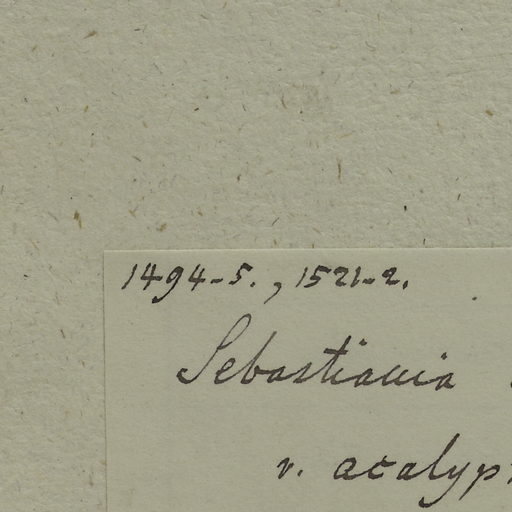 1494-5., 1521-2.
Sebastiania
v. acalyp